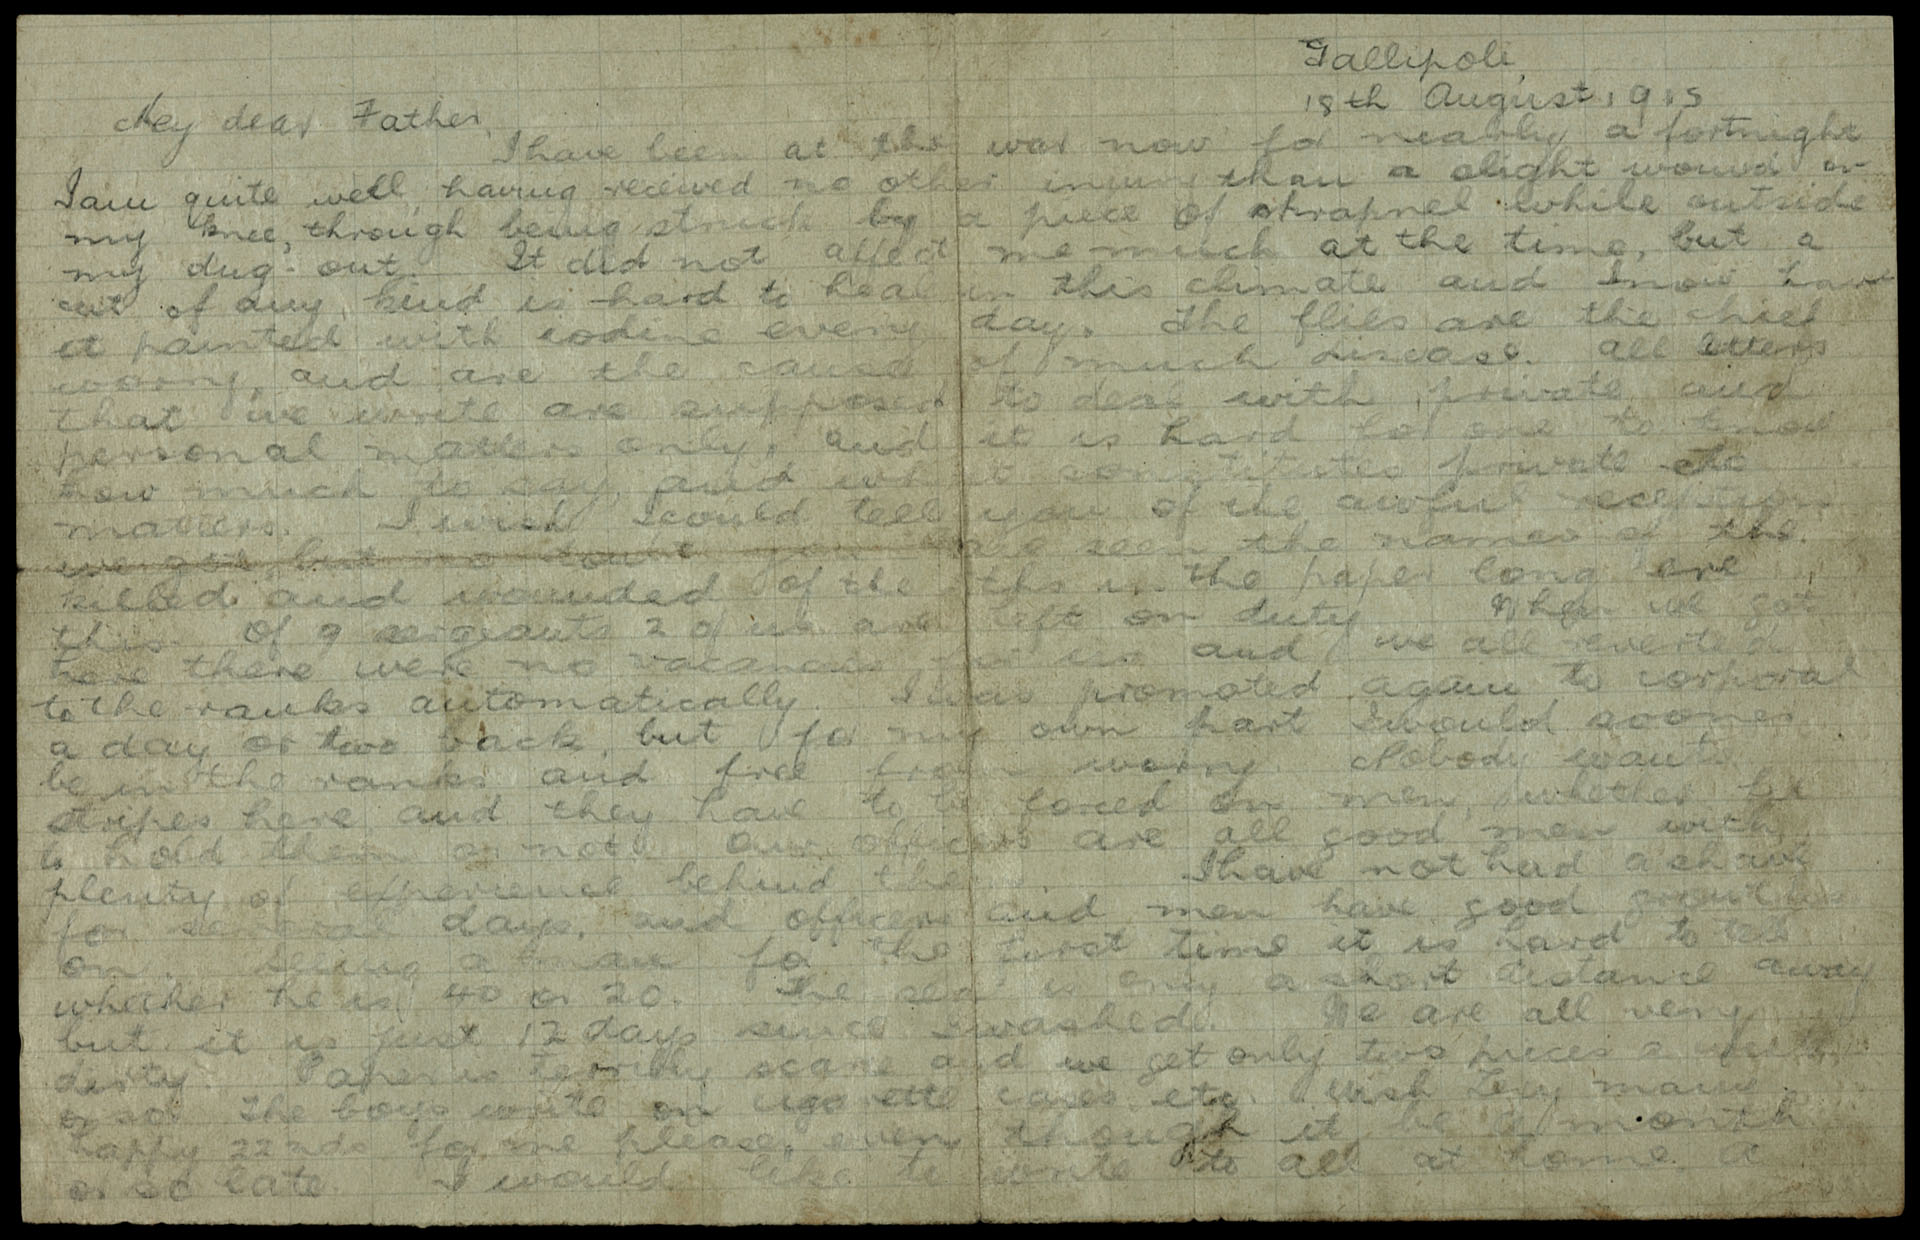 Gallipoli,
18th August, 1915
My dear Father,
I have been at the war now for nearly a fortnight
I am quite well, having received no other injury than a slight wound on
my knee, through being struck by a piece of shrapnel while outside
my dug-out. It did not affect me much at the time, but a
cut of any kind is hard to heal in this climate and I now have
it painted with iodine every day. The flies are the chief
worry, and are the cause of much disease. All letters
that we write are supposed to deal with private and
personal matters only, and it is hard for one to know
how much to say, and what constitutes private
matters. I wish I could tell you of the awful reception
we got, but no doubt you have seen the names of the
killed and wounded of the in the paper long ere
this. Of 9 sergeants 2 of us are left on duty. When we got
here there were no vacancies for us and we all reverted
to the ranks automatically. I was promoted again to corporal
a day or two back, but for my own part I would sooner
be in the ranks and free from worry. Nobody wants
stripes here and they have to be forced on men, whether
to hold them or not. Our officers are all good men with
plenty of experience behind them. I have not had a shave
for several days, and officers and men have good growths
on. Seeing a man for the first time it is hard to tell
whether he is 40 or 20. The sea is only a short distance away
but it is just 12 days since I washed. We are all very
dirty. Paper is terribly scarce and we get only two pieces a week
or so. The boys write on cigarette cases etc. Wish many
happy 22nds for me please, even though it be a month
or so late. I would like to write to all at home. A